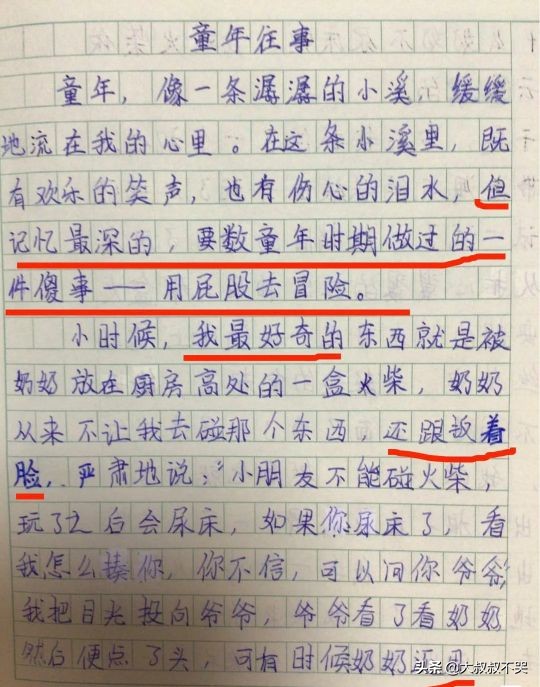 童年往事
童年，像一条潺潺的小溪，缓缓
地流在我的心里。在这条小溪里，既
有欢乐的笑声，也有伤心的泪水，但
记忆最深的，要数童年时期做过的一
件傻事——用屁股去冒险。
小时候，我最好奇的东西就是被
奶奶放在厨房高处的一盒火柴，奶奶
从来不让我去碰那个东西 还跟板着
脸，严肃地说：“小朋友不能碰火柴，
玩了之后会尿床，如果你尿床了，看
我怎么揍你，你不信，可以问你爷爷，”
我把目光投向爷爷，爷爷看了看奶奶
然后便点了头，可有时候奶奶还
头条 @大叔叔不哭